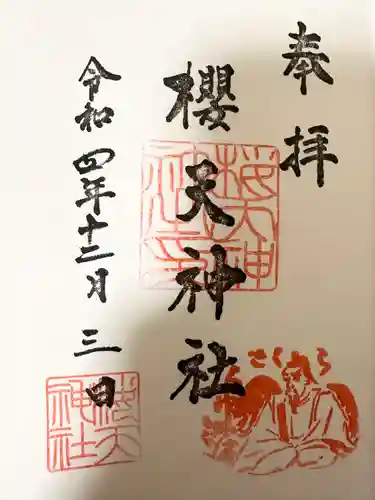 奉拝
櫻天神社
令和四年十二月三日
桜天神社之印
さくら
桜天神社